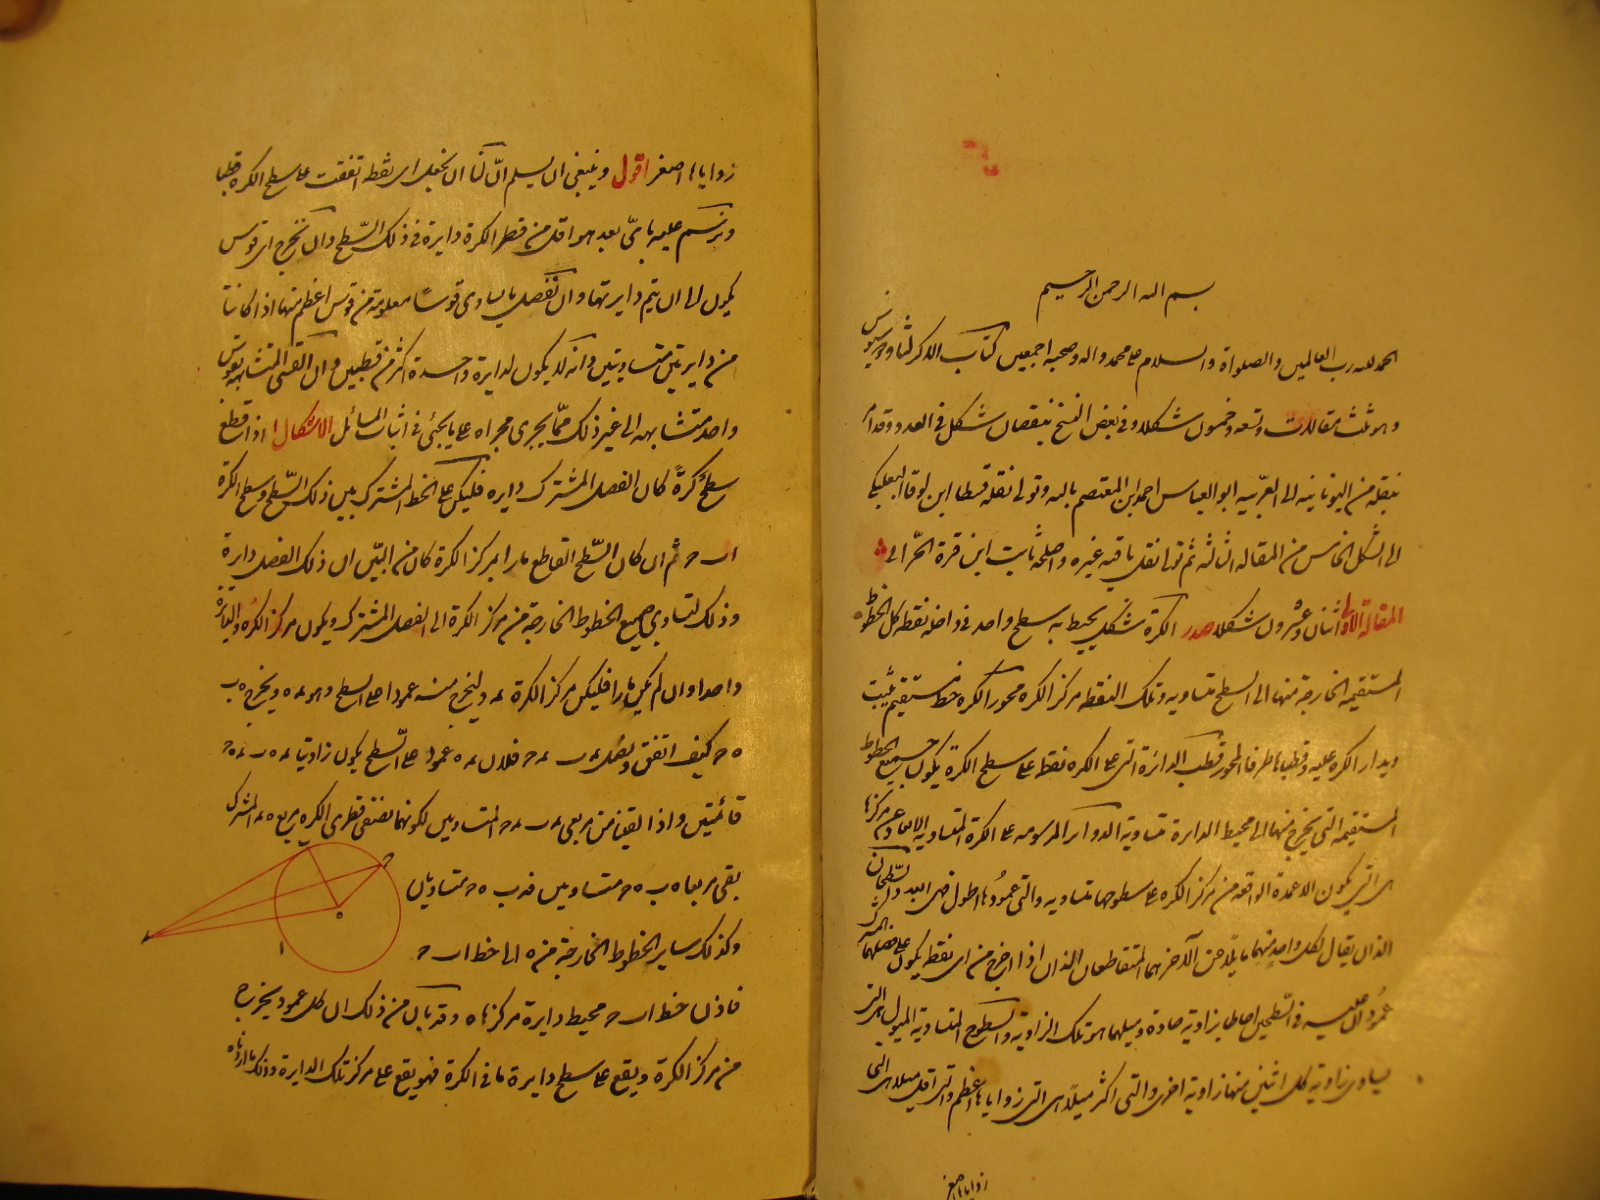 بسم الله الرحمن الرحيم
الحمد لله رب العالمين والصلواة والسلام على محمد واله وصحبه اجمعين كتاب الاكر لثاوذوسيوس
وهو ثلث مقالات وتسعه وخمسون شكلا وفى بعض النسخ بنقصان شكل فى العدد وقد امر
بنقله من اليونانيه الى العربيه ابو العباس احمد ابن المعتصم بالله وتولى نقله قسطا ابن لوقا البعلبكى
الى الشكل الخامس من المقاله الثالثه ثم تولى نقل باقيه غيره واصلحه ثابت ابن قرة الحرانى
المقالة الاولى اثنان وعشرون شكلا صدر الكرة شكل يحيط به سطح واحد فى داخله نقطه كل الخطوط
المستقيمه الخارجة منها الى السطح متساويه وتلك النقطه مركز الكره محور الكره خط مستقيم يثبت
ويدار الكره عليه وقطباها طرفا المحور قطب الدائرة التى على الكره نقطه على سطح الكرة يكون جميع الخطوط
المستقيمه التى يخرج منها الى محيط الدايرة متساوية الدواير المرسومه على الكرة المتساويه الابعاد عن مركزها
هى التى يكون الاعمدة الواقعه من مركز الكره على سطوحها متساويه والتى عمودها اطول فهى ابعد والسطحان
اللذان يقال لكل واحد منهما مايلا عن الآخر هما المتقاطعان اللذان اذا اخرج من اى نقطه يكون على فصلهما المشترك
عمودان عليه فى السطحين احاطا بزاوية حادة وميلهما هو تلك الزاوية والسطوح المتساوية الميول هى التى
يساوى زاوية كل اثنين منها زاوية اخرى والتى اكثر ميلا هى التى زواياها اعظم والتى اقل ميلا هى التى
زواياها اصغر
زواياها اصغر اقول وينبغى ان يسلم ان لنا ان نجعل اى نقطه اتفقت على سطح الكره قطبا
ونرسم عليه باى بعد هو اقل من قطر الكرة دايرة فى ذلك السطح وان نخرج اى قوس
يكون الى ان يتم دايرتها وان نفصل ما يساوى قوسا معلومة من قوس اعظم منها اذا كانتا
من دايرتين متساويتين وانه لا يكون لدايرة واحدة اكثر من قطبين وان القسى المتشابهه بقوس
واحد متشابهه الى غير ذلك مما يجرى مجراه على ما يجئ فى اثبات المسائل الاشكال ا اذا قطع
سطح كرة كان الفصل المشترك دايره فليكن على الخط المشترك بين ذلك السطح وسطح الكرة
ا ب ح ثم ان كان السطح القاطع مارا بمركز الكرة كان من البين ان ذلك الفصل دايرة
وذلك لتساوى جميع الخطوط الخارجة من مركز الكرة الى الفصل المشترك ويكون مركز الكره والدايرة
واحدا وان لم يكن مارا فليكن مركز الكرة ء وليخرج منه عمودا على السطح وهو ء ه ويخرج ه ب
ه ح كيف اتفق ونصل ء ب ء ح فلان ء ه عمود على السطح يكون زاويتا ء ه ب ء ه ح
قائمتين واذا القينا من مربعى ء ب ء ح المتساويين لكونهما نصفى قطرى الكره مربع ه ء المشترك
بقى مربعا ه ب ه ح متساويين فه ب ه ح متساويان
وكذلك ساير الخطوط الخارجة من ه الى خط ا ب ح
فاذن خط ا ب ح محيط دايرة مركزها ه وقد بان من ذلك ان كل عمود يخرج
من مركز الكرة ويقع على سطح دايرة ما فى الكرة فهو يقع على مركز تلك الدايرة وذلك ما اردناه